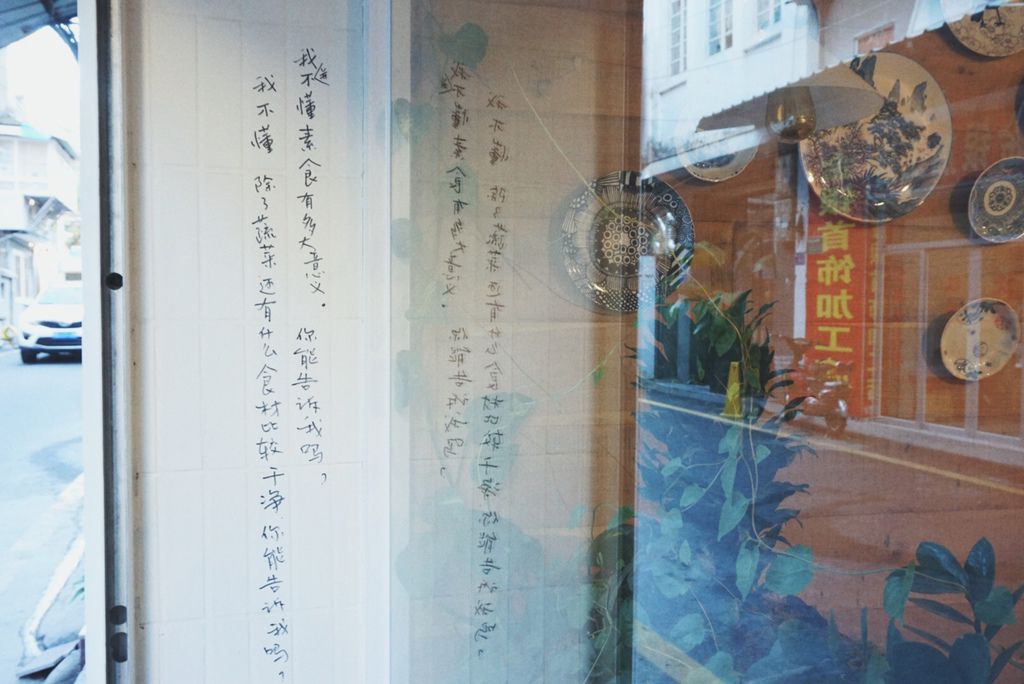 我不懂素食有多大意义。你能告诉我吗，
我不懂 除了蔬菜还有什么食材比较干净，你能告诉我吗？
首饰加工